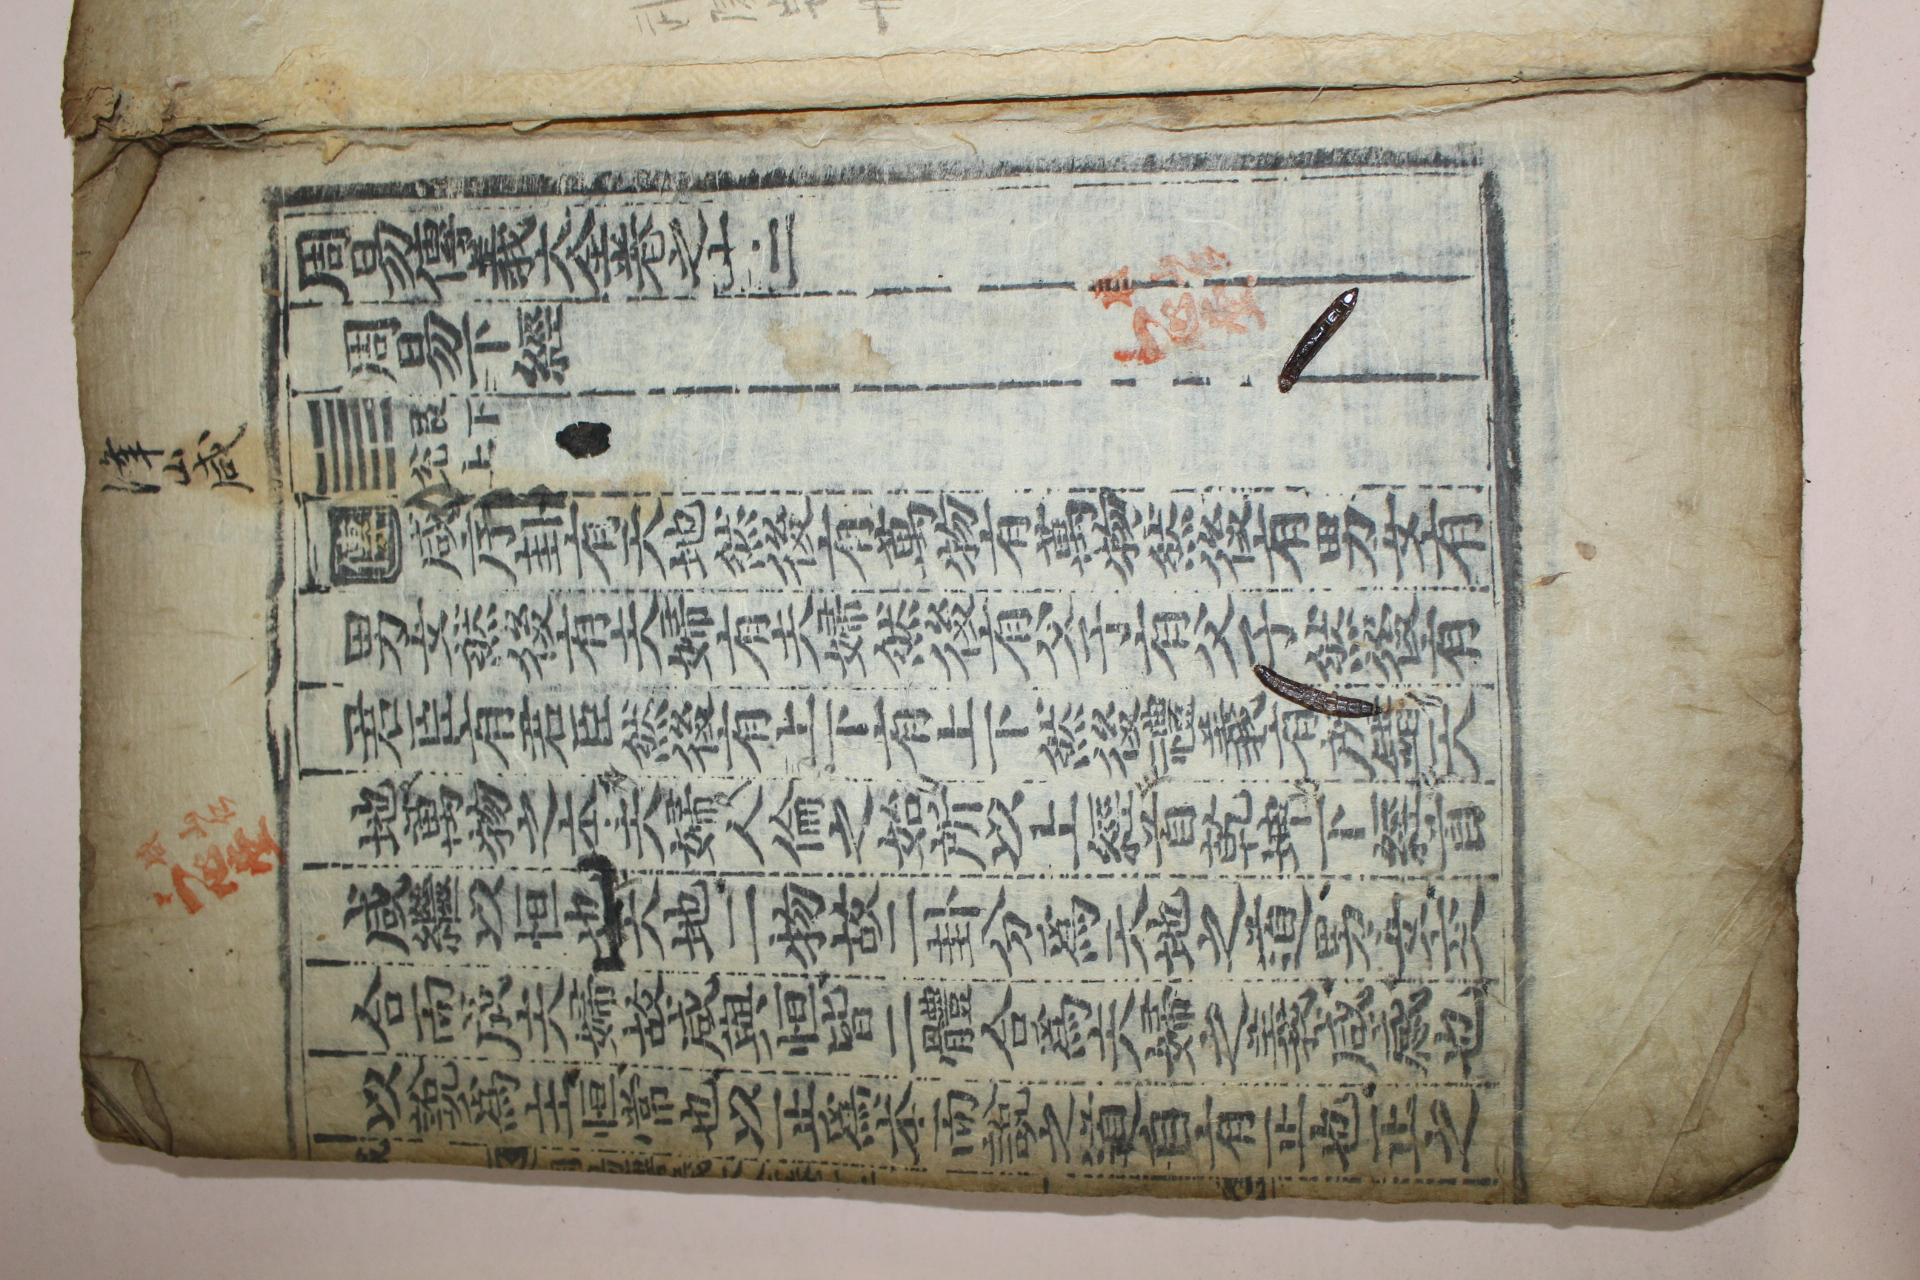 周易傳義大全卷之十二
周易下經
艮下
兌上
傳咸序卦有天地然後有萬物有萬物然後有男女有
男女然後有夫婦有夫婦然後有父子有父子然後有
君臣有君臣然後有上下有上下然後禮義有所錯天
地萬物之本夫婦人倫之始所以上經首乾坤下經首
咸繼以恒也天地二物故二卦分爲天地之道男女交
合而成夫婦故咸與恒皆二體合爲夫婦之義咸感也
以說爲主恒常也以正爲本而說之道自有正也正之
澤山咸